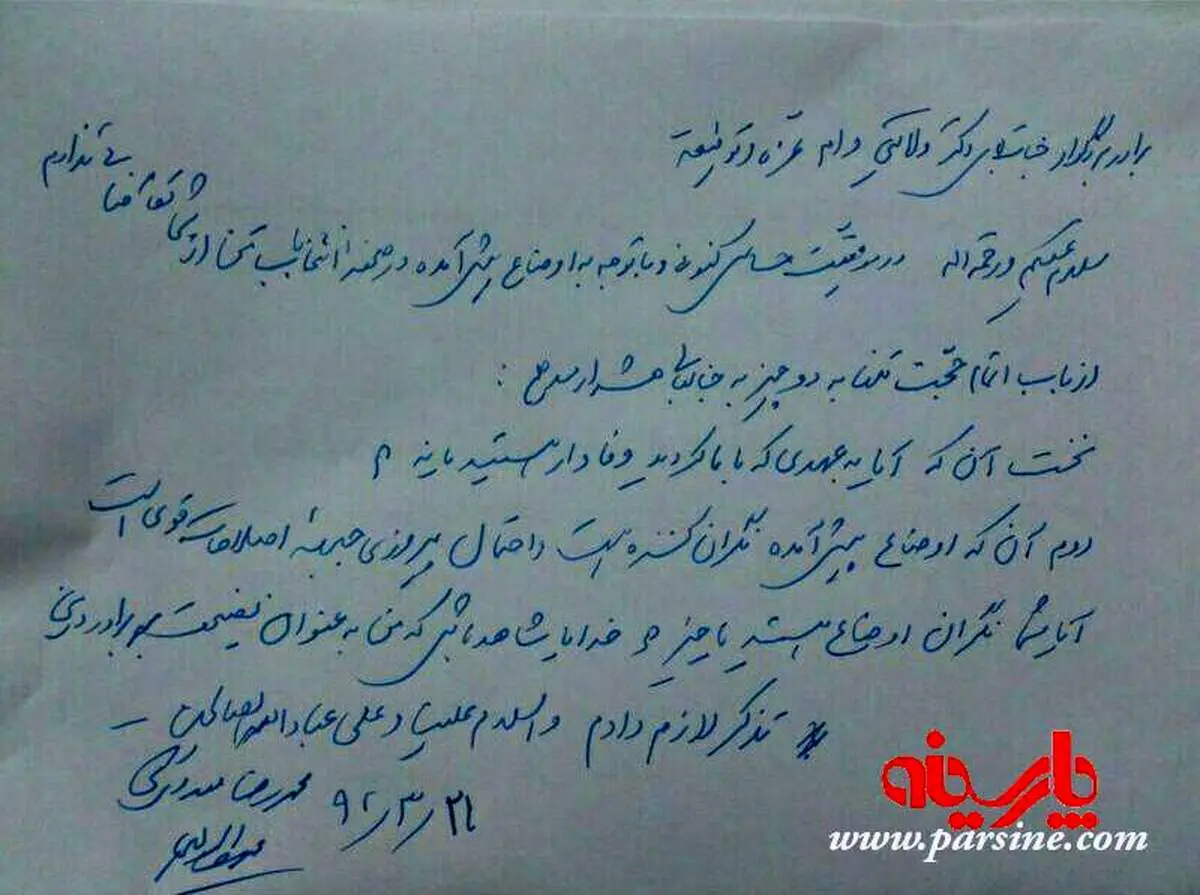 برادر بزرگوار جناب آقای دکتر ولایتی دام عزه و توفیقه
سلام علیکم و رحمة اله در موقعیت حساس کنونی و با توجه به اوضاع پیش آمده در صحنه انتخابات من از شما تقاضایی ندارم
از باب اتمام حجت تنها به دو چیز به جنابعالی هشدار میدهم :
نخست آن که آیا به عهدی که با ما کردید وفادار هستید یا نه ؟
دوم آن که اوضاع پیش آمده نگران کننده است و احتمال پیروزی جبهه اصلاحات قوی است
آیا شما نگران اوضاع هستید یا خیر ؟ خدایا شاهد باش که من به عنوان نصیحت برادر دینی
تذکر لازم دادم والسلام علینا و علی عباد الله الصالحین
محمدرضا مهدوی کنی
۹۲/۳/۲۱
پارسینه
www.parsine.com